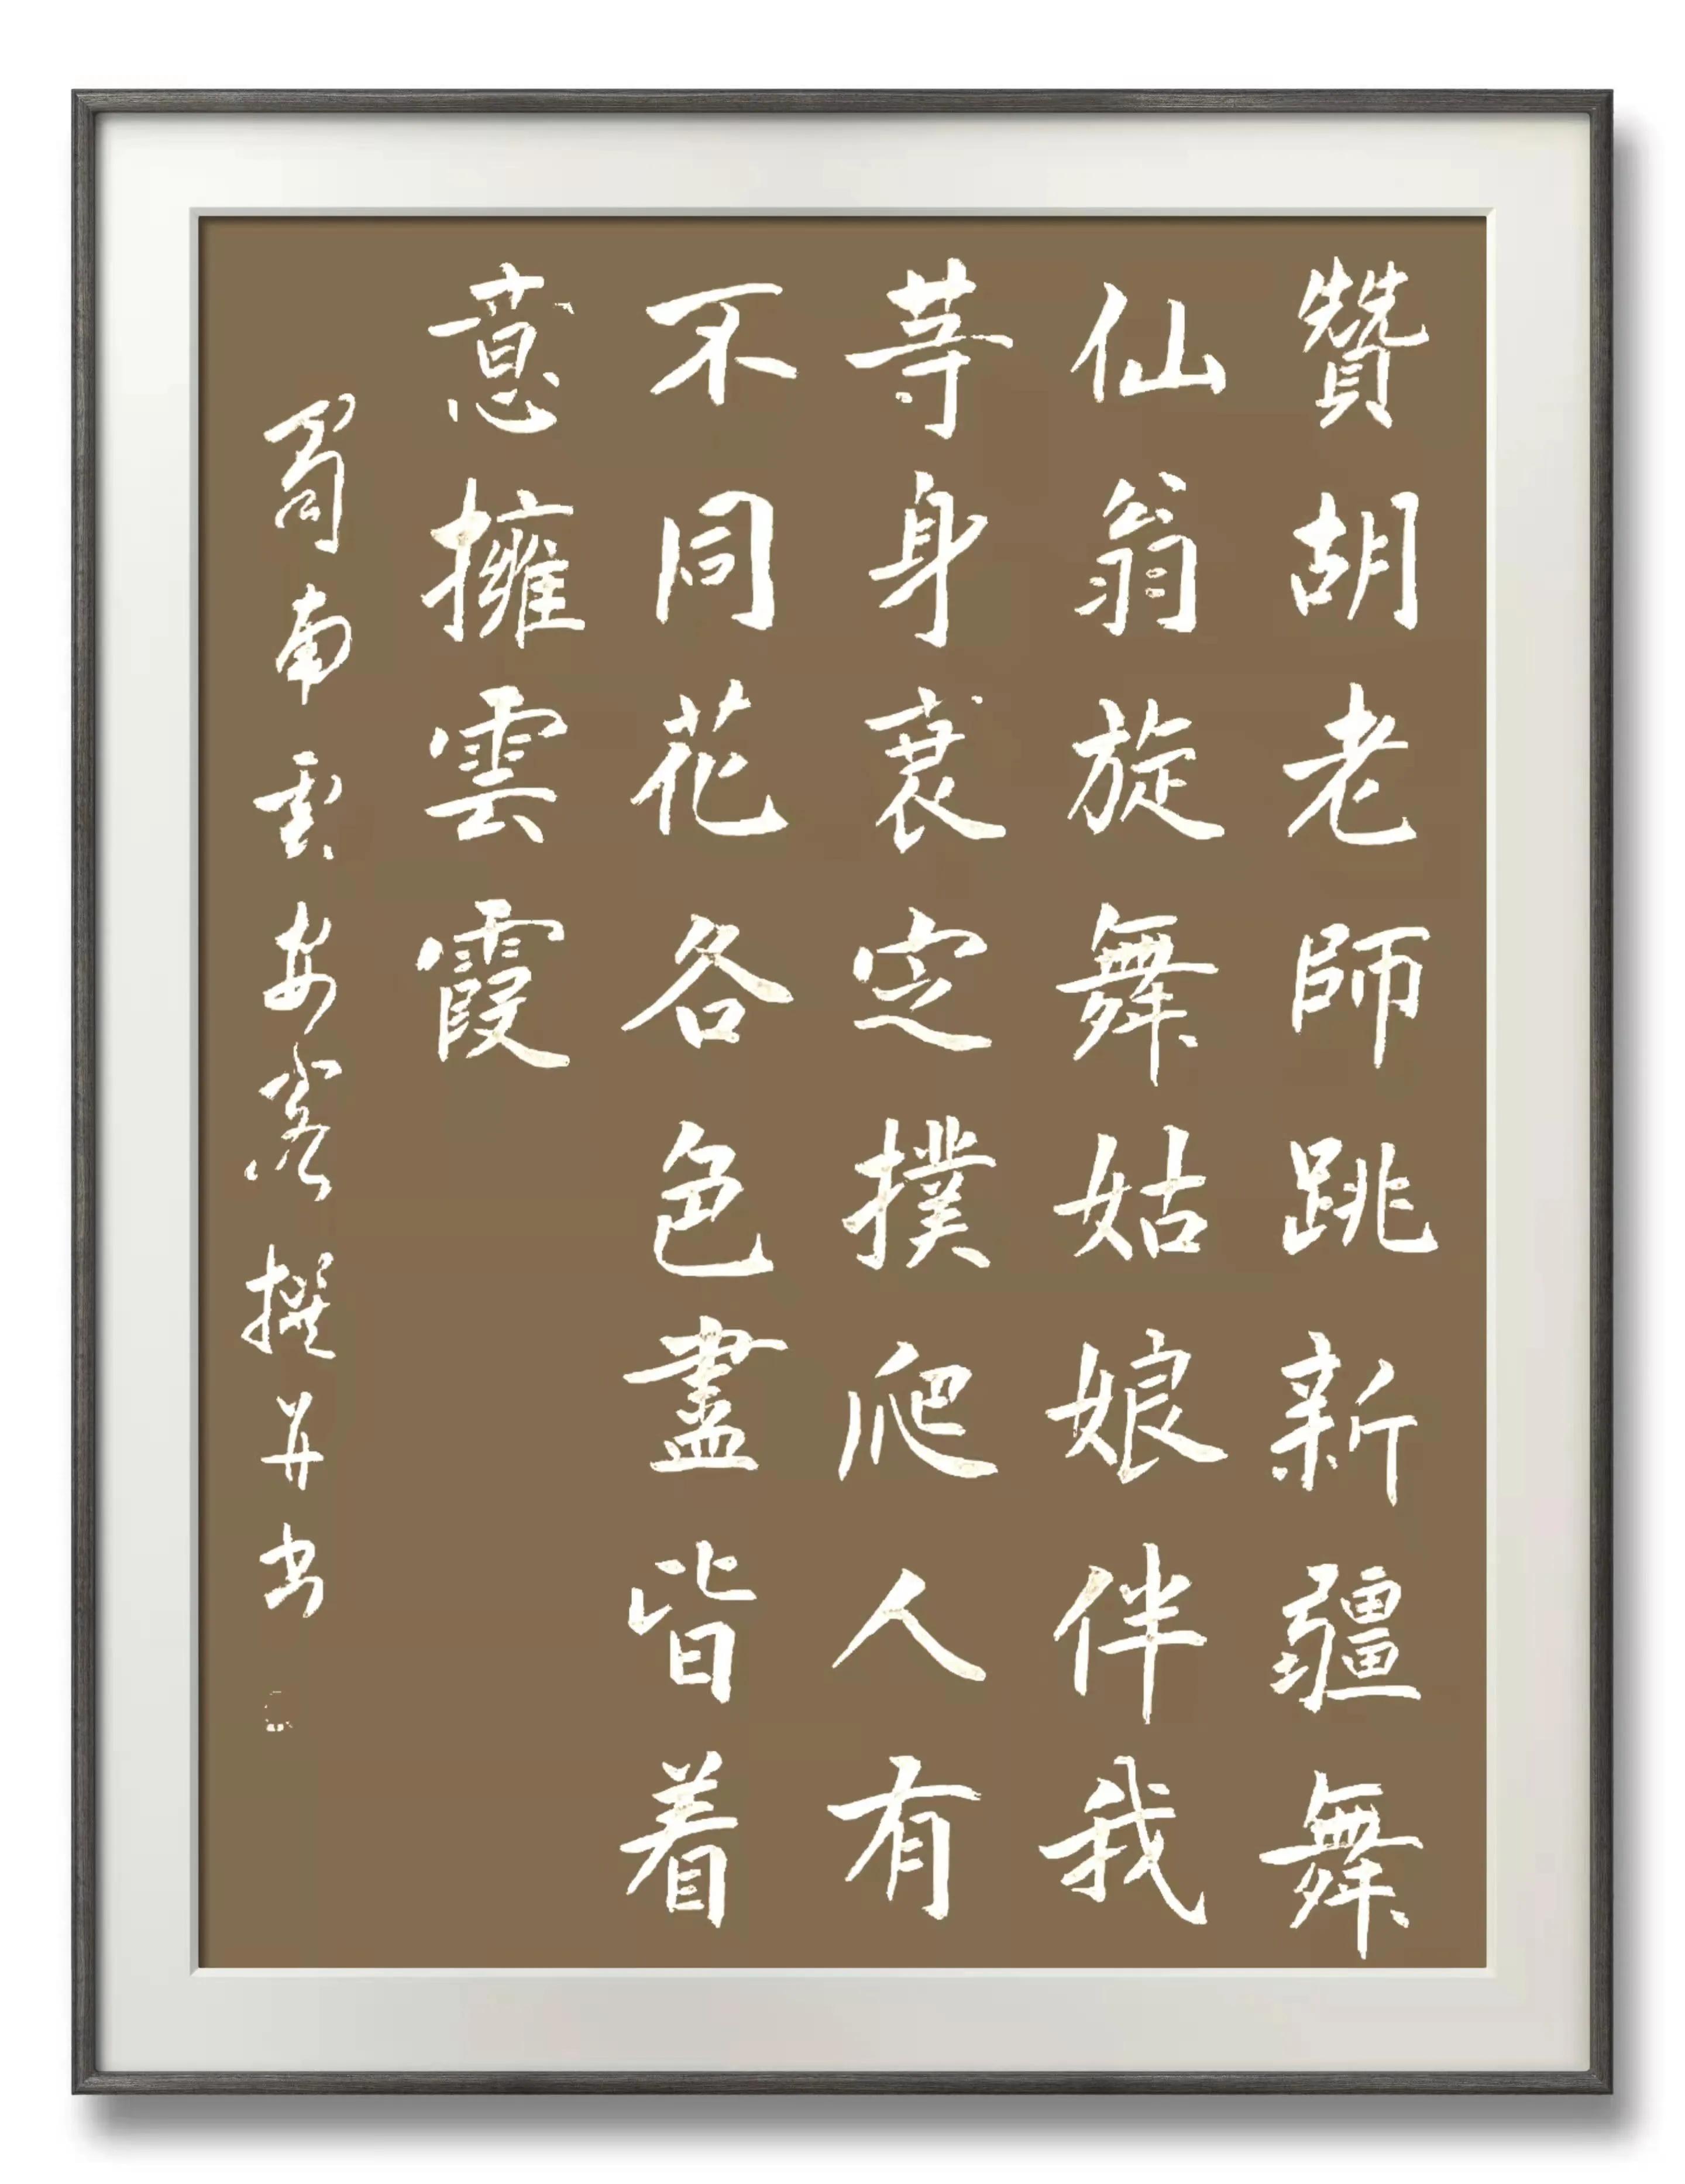 贊胡老師跳新疆舞
仙翁旋舞姑娘伴我
等身衰定撲爬人有
不同花各色盡皆着
意擁雲霞
蜀南雲安客撰并书